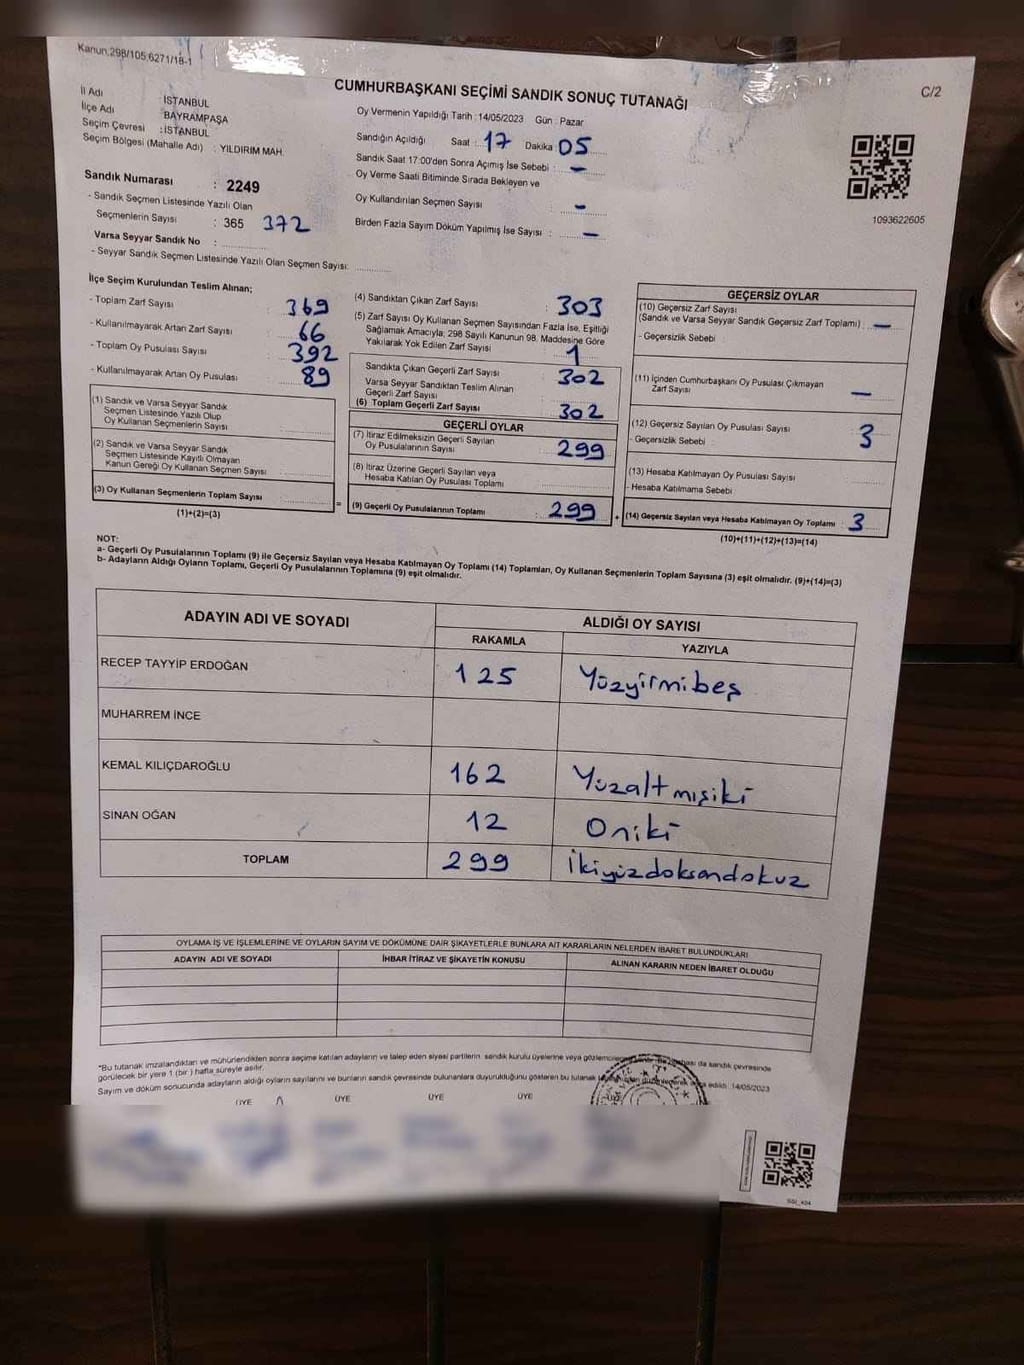 Kanun.298/105;6271/18-1
CUMHURBAŞKANI SEÇİMİ SANDIK SONUÇ TUTANAĞI
C/2
İl Adı : İSTANBUL
İlçe Adı BAYRAMPAŞA
Seçim Çevresi : İSTANBUL
Seçim Bölgesi (Mahalle Adı) : YILDIRIM MAH.
Oy Vermenin Yapıldığı Tarih : 14/05/2023 Gün : Pazar
Sandığın Açıldığı Saat 17 Dakika 05
Sandık Saat 17:00'den Sonra Açılmış İse Sebebi : -
Oy Verme Saati Bitiminde Sırada Bekleyen ve
Oy Kullandırılan Seçmen Sayısı -
Birden Fazla Sayım Döküm Yapılmış İse Sayısı : -
1093622605
Sandık Numarası : 2249
- Sandık Seçmen Listesinde Yazılı Olan
Seçmenlerin Sayısı : 365 372
Varsa Seyyar Sandık No :
- Seyyar Sandık Seçmen Listesinde Yazılı Olan Seçmen Sayısı:
İlçe Seçim Kurulundan Teslim Alınan;
- Toplam Zarf Sayısı : 369
- Kullanılmayarak Artan Zarf Sayısı : 66
- Toplam Oy Pusulası Sayısı : 392
- Kullanılmayarak Artan Oy Pusulası : 89
(1) Sandık ve Varsa Seyyar Sandık
Seçmen Listesinde Yazılı Olup
Oy Kullanan Seçmenlerin Sayısı :
(2) Sandık ve Varsa Seyyar Sandık
Seçmen Listesinde Kayıtlı Olmayan
Kanun Gereği Oy Kullanan Seçmen Sayısı :
(3) Oy Kullanan Seçmenlerin Toplam Sayısı :
(1)+(2)=(3)
(4) Sandıktan Çıkan Zarf Sayısı : 303
(5) Zarf Sayısı Oy Kullanan Seçmen Sayısından Fazla İse, Eşitliği
Sağlamak Amacıyla; 298 Sayılı Kanunun 98. Maddesine Göre
Yakılarak Yok Edilen Zarf Sayısı : 1
Sandıkta Çıkan Geçerli Zarf Sayısı : 302
Varsa Seyyar Sandıktan Teslim Alınan
Geçerli Zarf Sayısı :
(6) Toplam Geçerli Zarf Sayısı : 302
GEÇERLİ OYLAR
(7) İtiraz Edilmeksizin Geçerli Sayılan
Oy Pusulalarının Sayısı : 299
(8) İtiraz Üzerine Geçerli Sayılan veya
Hesaba Katılan Oy Pusulası Toplamı :
= (9) Geçerli Oy Pusulalarının Toplamı : 299
GEÇERSİZ OYLAR
(10) Geçersiz Zarf Sayısı
(Sandık ve Varsa Seyyar Sandık Geçersiz Zarf Toplamı) : -
- Geçersizlik Sebebi
(11) İçinden Cumhurbaşkanı Oy Pusulası Çıkmayan
Zarf Sayısı : -
(12) Geçersiz Sayılan Oy Pusulası Sayısı : 3
- Geçersizlik Sebebi :
(13) Hesaba Katılmayan Oy Pusulası Sayısı :
- Hesaba Katılmama Sebebi
+ (14) Geçersiz Sayılan veya Hesaba Katılmayan Oy Toplamı : 3
(10)+(11)+(12)+(13)=(14)
NOT:
a- Geçerli Oy Pusulalarının Toplamı (9) ile Geçersiz Sayılan veya Hesaba Katılmayan Oy Toplamı (14) Toplamları, Oy Kullanan Seçmenlerin Toplam Sayısına (3) eşit olmalıdır. (9)+(14)=(3)
b- Adayların Aldığı Oyların Toplamı, Geçerli Oy Pusulalarının Toplamına (9) eşit olmalıdır.
ADAYIN ADI VE SOYADI ALDIĞI OY SAYISI
RAKAMLA YAZIYLA
RECEP TAYYİP ERDOĞAN 125 Yüzyirmibeş
MUHARREM İNCE
KEMAL KILIÇDAROĞLU 162 Yüzaltmışiki
SİNAN OĞAN 12 Oniki
TOPLAM 299 İkiyüzdoksandokuz
OYLAMA İŞ VE İŞLEMLERİNE VE OYLARIN SAYIM VE DÖKÜMÜNE DAİR ŞİKAYETLERLE BUNLARA AİT KARARLARIN NELERDEN İBARET BULUNDUKLARI
ADAYIN ADI VE SOYADI İHBAR İTİRAZ VE ŞİKAYETİN KONUSU ALINAN KARARIN NEDEN İBARET OLDUĞU
*Bu tutanak imzalandıktan ve mühürlendikten sonra seçime katılan adayların ve talep eden siyasi partilerin sandık kurulu üyelerine veya da sandık çevresinde
görülecek bir yere 1 (bir) hafta süreyle asılır.
Sayım ve döküm sonucunda adayların aldığı oyların sayılarını ve bunların sandık çevresinde bulunanlara duyurulduğunu gösteren bu tutanak edildi. 14/05/2023
ÜYE ÜYE ÜYE ÜYE